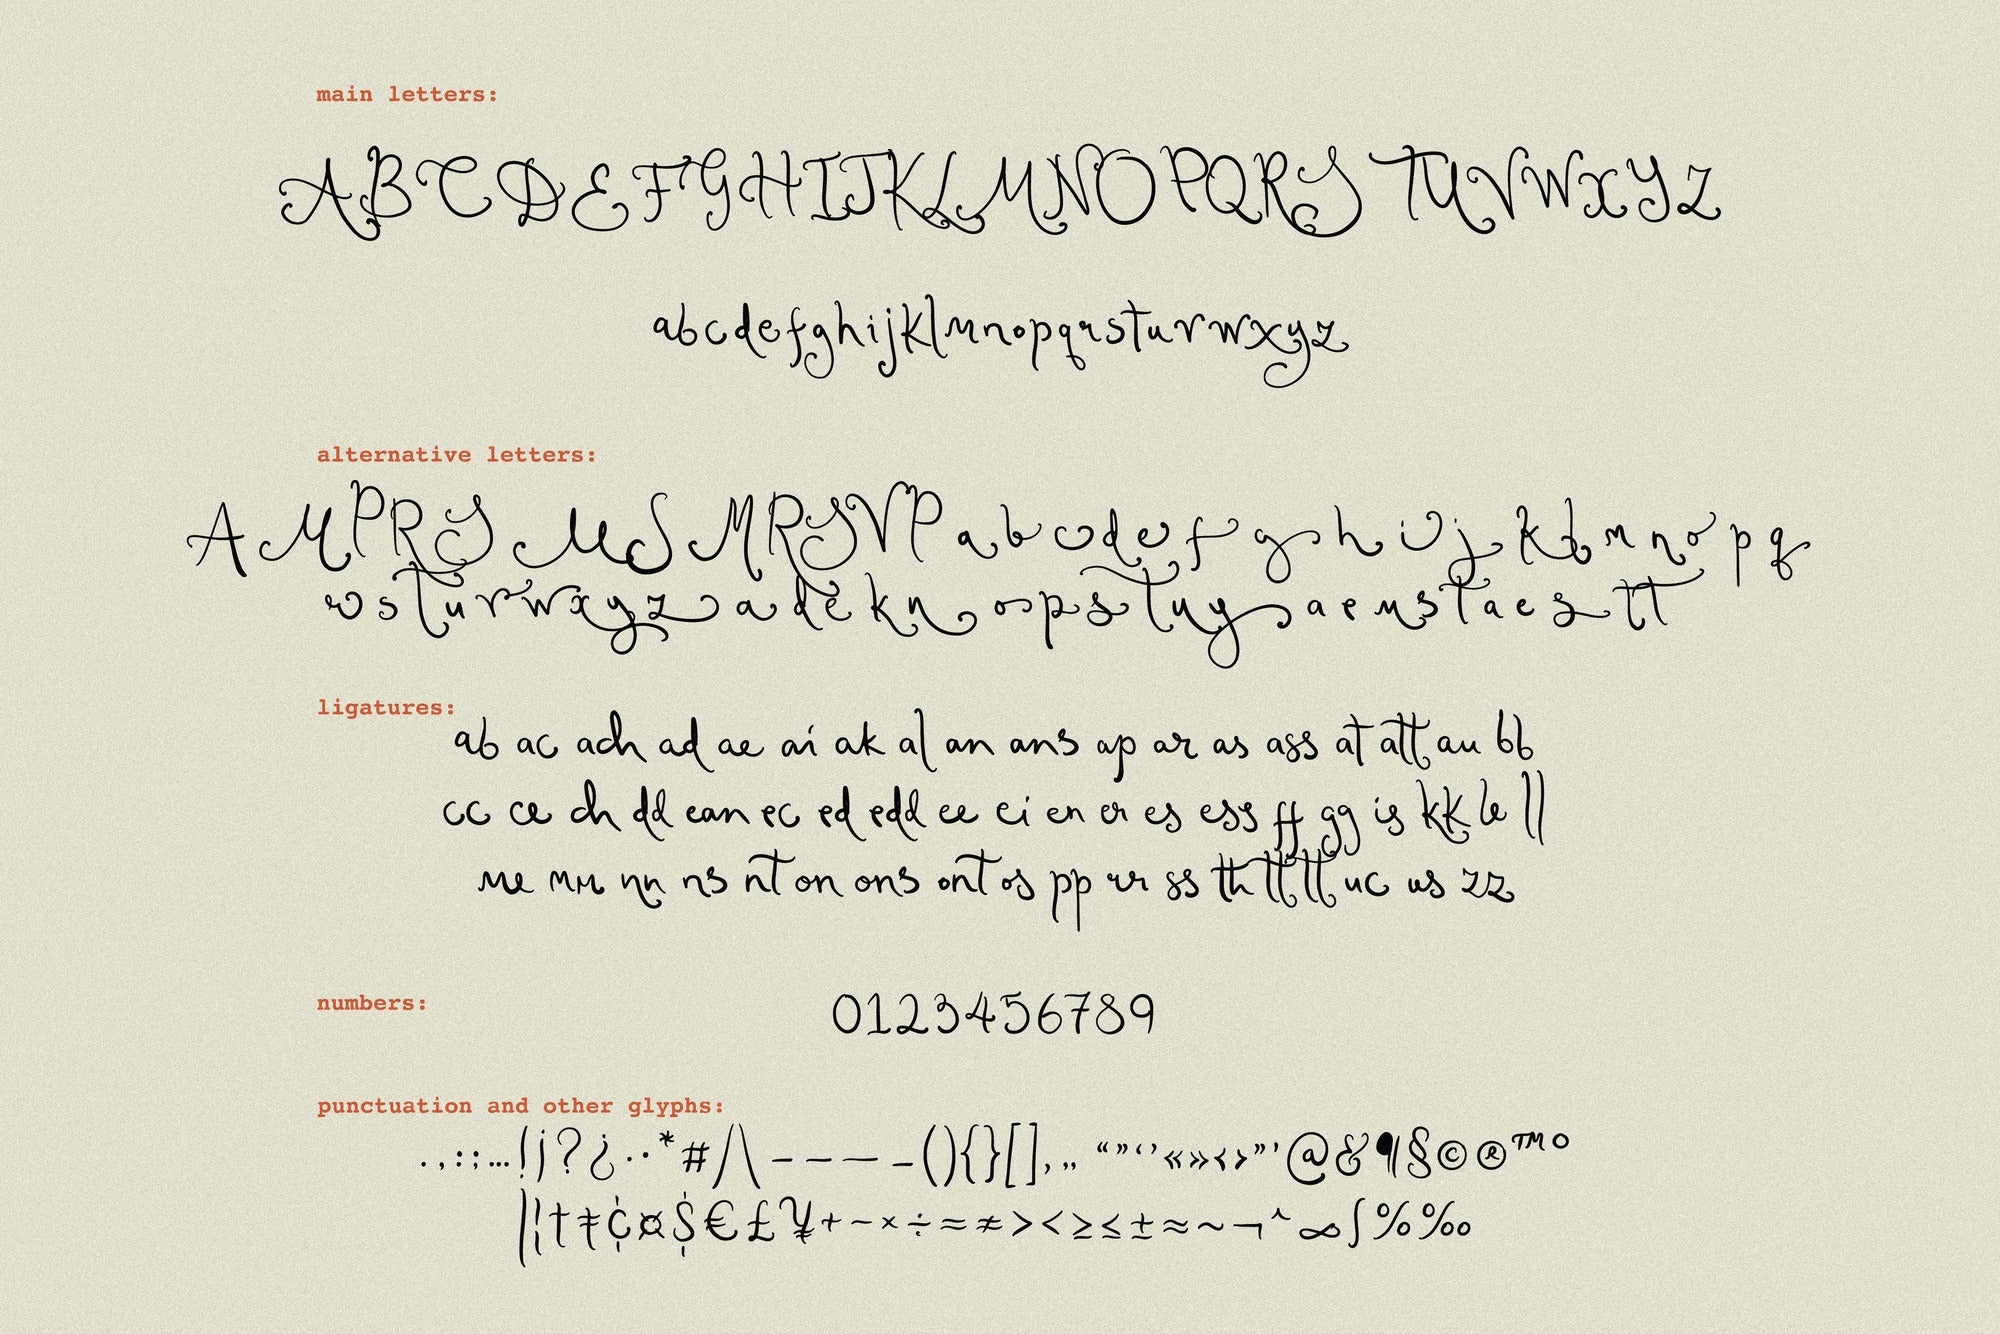 main letters:
ABCDEFGHIJKLMNOPQRSTUVWXYZ
abcdefghijklmnopqrstuvwxyz
alternative letters:
A M P R S M S M R S V P a b c d e f g h i j k l m n o p q
r s t u r w x y z a d e k n o p s t u y a e m s t a e s tt
ligatures:
ab ac ach ad ae ai ak al an ans ap ar as ass at att au bb
cc ce ch dd ean ec ed edd ee ei en er es ess ff gg is kk le ll
me mm nn ns nt on ons ont os pp rr ss th tt tt uc us zz
numbers:
0123456789
punctuation and other glyphs:
. , : ; … ! ¡ ? ¿ · • * # / \ - – — _ ( ) { } [ ] ‚ „ “ ” ‘ ’ « » ‹ › " ' @ & ¶ § © ® ™ °
| ¦ † ‡ ¢ ¤ $ € £ ¥ + − × ÷ = ≠ > < ≥ ≤ ± ≈ ~ ¬ ^ ∞ ∫ % ‰